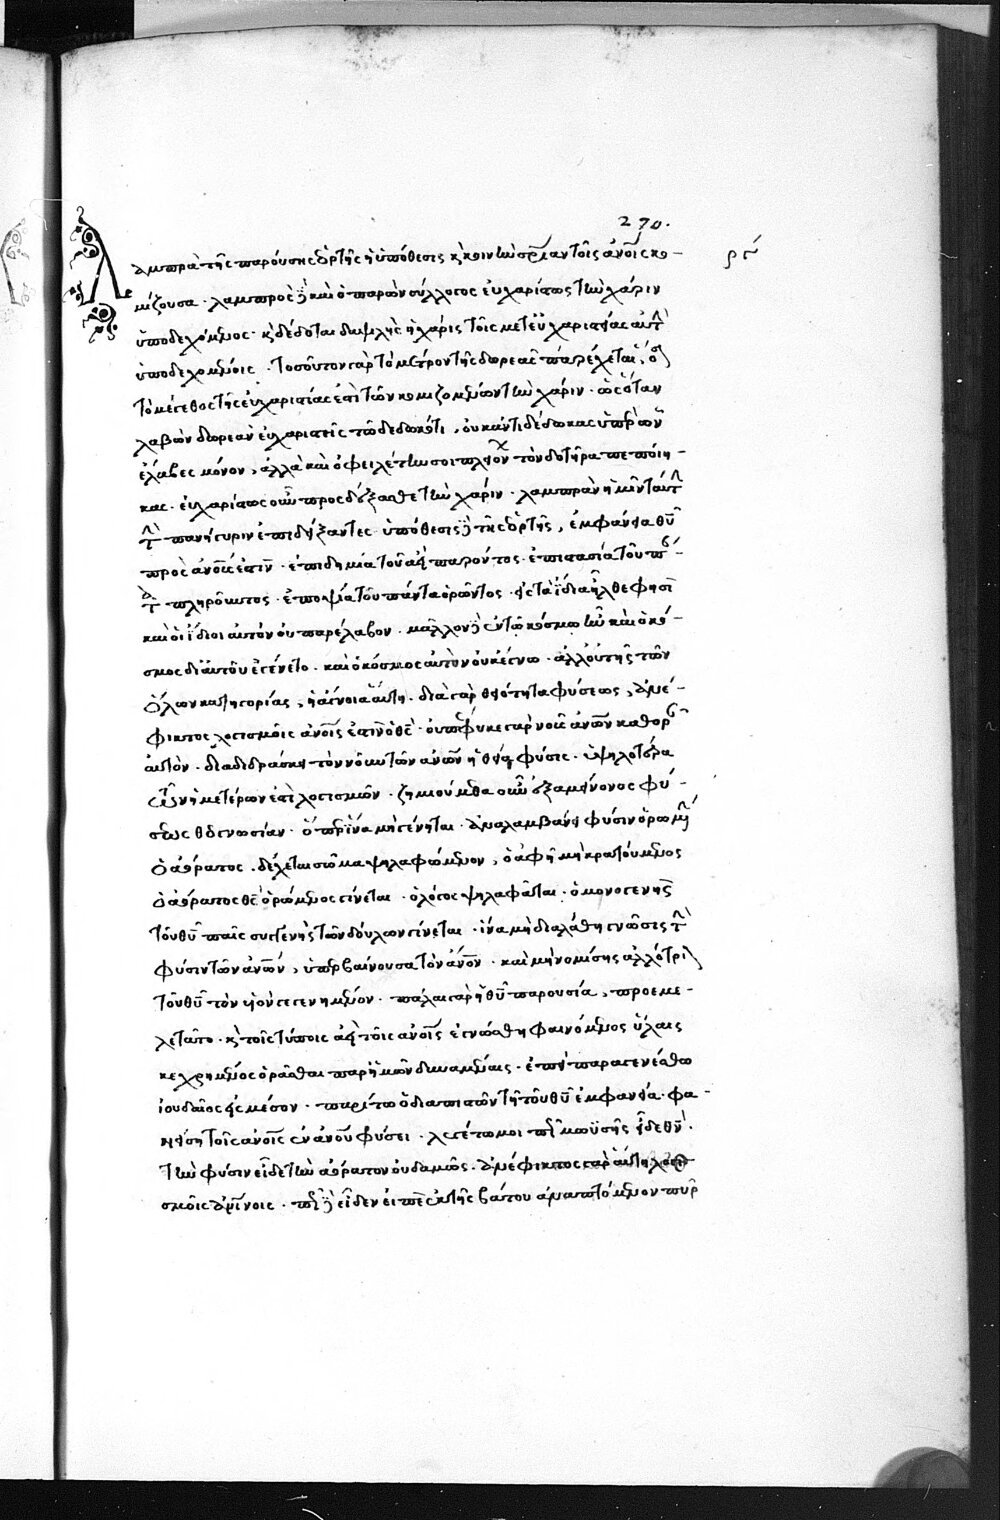 270.
Λαμπρὰ τῆς παρούσης ἑορτῆς ἡ ὑπόθεσις κ κοινὴν σ̅ρ̅ίαν τοῖς ἀν̅ο̅ις κο-
μίζουσα · λαμπρὸς δὲ καὶ ὁ παρὼν σύλλογος εὐχαρίστως τὴν χάριν
ὑποδεχόμενος · κ δέδοται δαψιλὴς ἡ χάρις τοῖς μετ' εὐχαριστίας αὐτὴν
ὑποδεχομένοις · τοσοῦτον γὰρ τὸ μέτρον τῆς δωρεᾶς παρέχεται, ὅσον
τὸ μέγεθος τῆς εὐχαριστίας ἐστὶ τῶν κομιζομένων τὴν χάριν · ὡς ὅταν
λαβὼν δωρεὰν εὐχαριστῇς τῷ δεδωκότι, οὐκ ἀντιδέδωκας ὑπὲρ ὧν
ἔλαβες μόνον, ἀλλὰ καὶ ὀφειλέτην σοι πλειόνων τὸν δοτῆρα πεποίη-
κας · εὐχαρίστως οὖν προσδέξασθε τὴν χάριν · λαμπρὰν ἡμῖν ταύτην
τὴν πανήγυριν ἐπιδείξαντες · ὑπόθεσις δὲ τῆς ἑορτῆς, ἐμφάνεια θ̅υ̅
πρὸς ἀν̅ο̅υς ἐστὶν · ἐπιδημία τοῦ ἀεὶ παρόντος · ἐπιστασία τοῦ πάν-
τα πληροῦντος · ἐποψία τοῦ πάντα ὁρῶντος · εἰς τὰ ἴδια ἦλθε φησὶ
καὶ οἱ ἴδιοι αὐτὸν οὐ παρέλαβον · μᾶλλον δὲ ἐν τῷ κόσμω ἦν καὶ ὁ κό-
σμος δι' αὐτοῦ ἐγένετο · καὶ ὁ κόσμος αὐτὸν οὐκ ἔγνω · ἀλλ' οὐ τῆς τῶν
ὅλων κατηγορίας, ἡ ἄγνοια αὕτη · διὰ γὰρ θειότητα φύσεως, ἀνέ-
φικτος λογισμοῖς ἀν̅ο̅ις ἐστὶν ὁ θ̅ς̅ · οὐ πέφυκε γὰρ νοῦς ἀν̅ω̅ν καθορᾶν
αὐτὸν · διαδιδράσκει τὸν νοῦν τῶν ἀν̅ω̅ν ἡ θεία φύσις · ὑψηλοτέρα
τῶν ἡμετέρων ἐστὶ λογισμῶν · ζημιούμεθα οὖν ἐξ ἀμείνονος φύ-
σεως θ̅υ̅ γνωσίαν · ὅπερ ἵνα μὴ γένηται · ἀναλαμβάνει φύσιν ὁρωμένην
ὁ ἀόρατος · δέχεται σῶμα ψηλαφώμενον, ὁ ἀφῇ μὴ κρατούμενος
ὁ ἀόρατος θ̅ς̅ ὁρώμενος γίνεται · ὁ λόγος ψηλαφᾶται · ὁ μονογενὴς
τοῦ θ̅υ̅ παῖς συγγενὴς τῶν δούλων γίνεται · ἵνα μὴ διαλάθη γνῶσις τὴν
φύσιν τῶν ἀν̅ω̅ν, ὑπερβαίνουσα τὸν ἄν̅ο̅ν · καὶ μὴ νομίσης ἀλλότριον
τοῦ θ̅υ̅ τὸν υἱὸν γεγενημένον · πάλαι γὰρ ἡ θ̅υ̅ παρουσία, προεμε-
λετᾶτο · κ τοῖς τύποις ἀεὶ τοῖς ἀν̅ο̅ις ἐγνώσθη φαινόμενος ὕλαις
κεχρημένος ὁρᾶσθαι παρ' ἡμῶν δυναμέναις · ἐπεὶ παραγενέσθω
ἰουδαῖος εἰς μέσον · παρίτω ὁ διαπιστῶν τῇ τοῦ θ̅υ̅ ἐμφανεία · φα-
νείσῃ τοῖς ἀν̅ο̅ις ἐν ἀν̅ο̅υ φύσει · λεγέτω μοι πῶς μωϋσῆς εἶδε θ̅ν̅ ·
τὴν φύσιν εἶδε τὴν ἀόρατον οὐδαμῶς · ἀνέφικτος γὰρ αὕτη λογι-
σμοῖς ἀν̅ίνοις · πῶς δὲ εἶδεν εἰπὲ ἐκ τῆς βάτου ἀναπτόμενον πῦρ